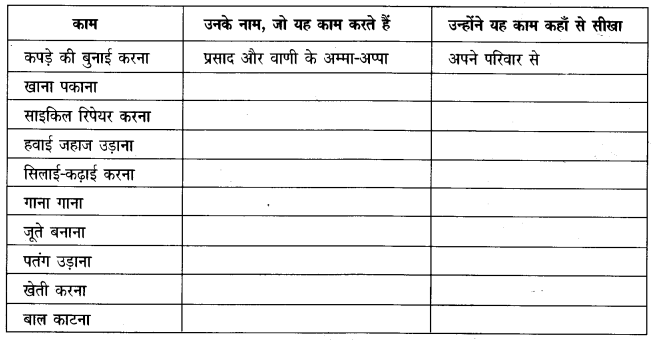 काम उनके नाम, जो यह काम करते हैं उन्होंने यह काम कहाँ से सीखा
कपड़े की बुनाई करना प्रसाद और वाणी के अम्मा-अप्पा अपने परिवार से
खाना पकाना
साइकिल रिपेयर करना
हवाई जहाज उड़ाना
सिलाई-कढ़ाई करना
गाना गाना
जूते बनाना
पतंग उड़ाना
खेती करना
बाल काटना